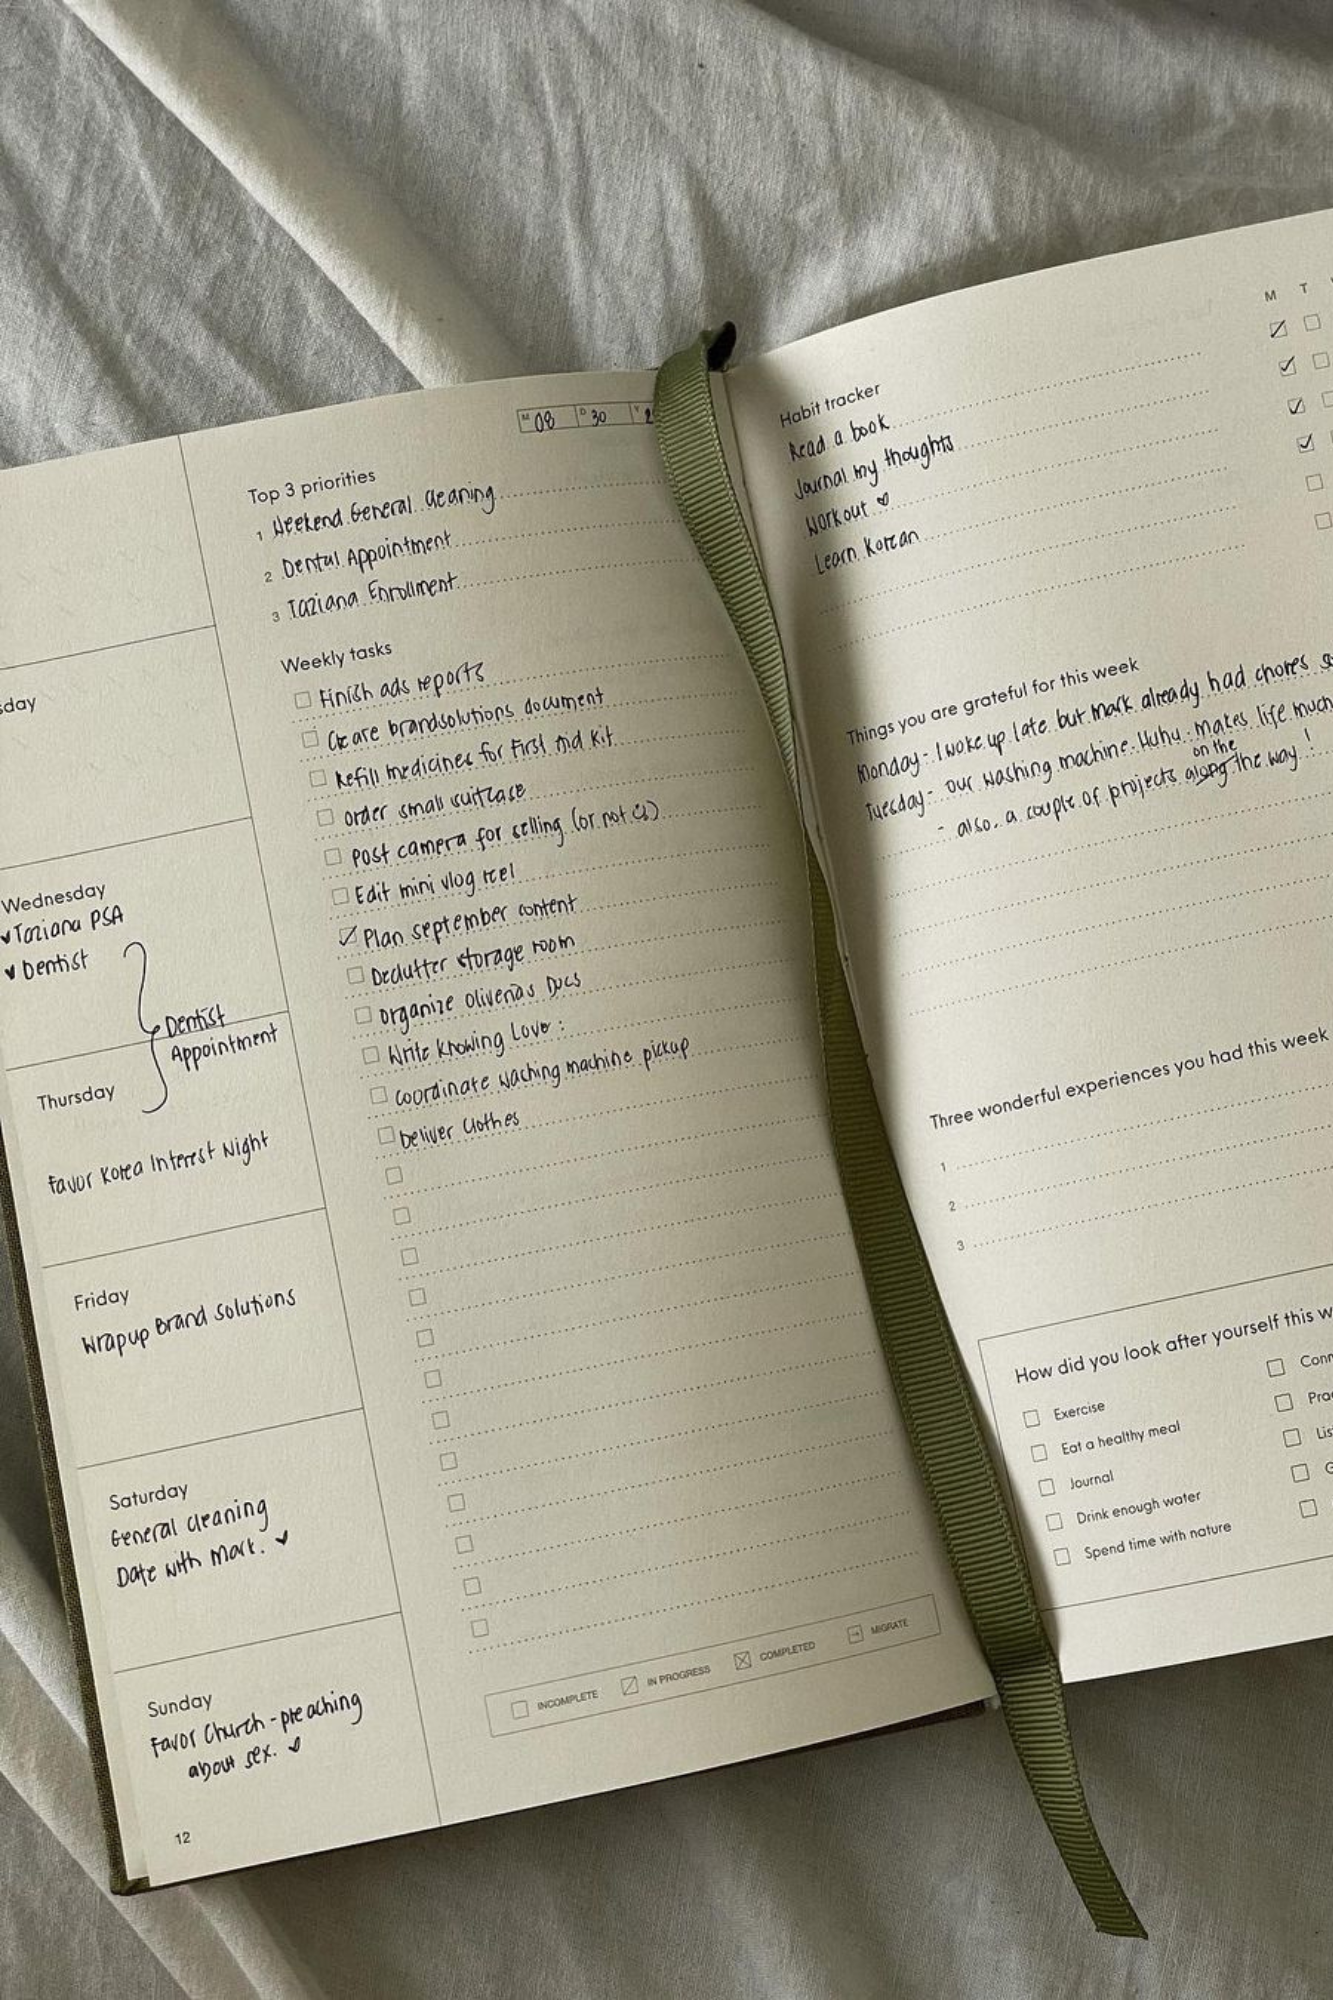 M 08 D 30 Y 2
Top 3 priorities
1 Weekend General cleaning
2 Dental Appointment
3 Taziana Enrollment
Weekly tasks
Finish ads reports
brandsolutions document
Refill medicines for First Aid Kit
order small suitcase
Post camera for selling (or not
Edit mini vlog reel
Plan september content
Declutter storage room
organize Docs
Write Knowing Love:
coordinate waching machine pickup
Deliver Clothes
INCOMPLETE IN PROGRESS COMPLETED MIGRATE
sday
Wednesday
Taziana PSA
Dentist
Dentist
Appointment
Thursday
Favor Korea Interest Night
Friday
Wrapup Brand Solutions
Saturday
General cleaning
Date with Mark.
Sunday
Favor Church - preaching
about sex.
12
M T
Habit tracker
Read a book
Journal my thoughts
Workout
Learn Korean
Things you are grateful for this week
Monday - I woke up late but Mark already had chores
Tuesday - our washing machine. Huhu. makes life much
on the
- also. a couple of projects along the way!
Three wonderful experiences you had this week
1
2
3
How did you look after yourself this w
Exercise
Eat a healthy meal
Journal
Drink enough water
Spend time with nature
Conn
Prac
Lis
G